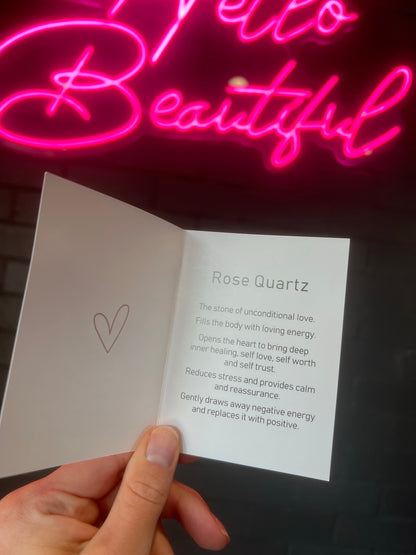 Hello
Beautiful
Rose Quartz
The stone of unconditional love.
Fills the body with loving energy.
Opens the heart to bring deep
inner healing, self love, self worth
and self trust.
Reduces stress and provides calm
and reassurance.
Gently draws away negative energy
and replaces it with positive.